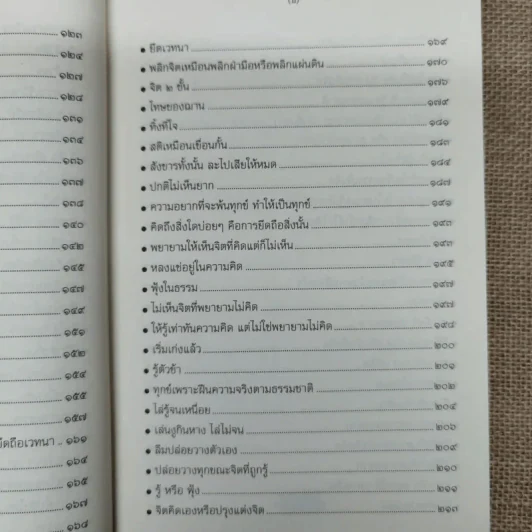 ๑๒๓
๑๒๔
๑๒๗
๑๒๘
๑๓๑
๑๓๔
๑๓๖
๑๓๗
๑๓๘
๑๔๐
๑๔๒
๑๔๕
๑๔๗
๑๔๙
๑๕๑
๑๕๒
๑๕๔
๑๕๕
๑๕๗
ยึดถือเวทนา .. ๑๖๑
๑๖๔
๑๖๕
๑๖๗
๑๖๘
• ยึดเวทนา ๑๖๙
• พลิกจิตเหมือนพลิกฝ่ามือหรือพลิกแผ่นดิน ๑๗๐
• จิต ๒ ชั้น ๑๗๖
• โทษของฌาน ๑๗๙
• ทิ้งที่ใจ ๑๘๑
• สติเหมือนเขื่อนกั้น ๑๘๓
• สังขารทั้งนั้น ละไปเสียให้หมด ๑๘๔
• ปกติไม่เห็นยาก ๑๘๗
• ความอยากที่จะพ้นทุกข์ ทำให้เป็นทุกข์ ๑๙๑
• คิดถึงสิ่งใดบ่อยๆ คือการยึดถือสิ่งนั้น ๑๙๓
• พยายามให้เห็นจิตที่คิดแต่ก็ไม่เห็น ๑๙๓
• หลงแช่อยู่ในความคิด ๑๙๕
• ฟุ้งในธรรม ๑๙๗
• ไม่เห็นจิตที่พยายามไม่คิด ๑๙๗
• ให้รู้เท่าทันความคิด แต่ไม่ใช่พยายามไม่คิด ๑๙๘
• เริ่มเก่งแล้ว ๒๐๐
• รู้ตัวช้า ๒๐๑
• ทุกข์เพราะฝืนความจริงตามธรรมชาติ ๒๐๒
• ไล่รู้จนเหนื่อย ๒๐๔
• เล่นงูกินหาง ไล่ไม่จน ๒๐๖
• ลืมปล่อยวางตัวเอง ๒๐๙
• ปล่อยวางทุกขณะจิตที่ถูกรู้ ๒๑๐
• รู้ หรือ ฟุ้ง ๒๑๑
• จิตคิดเองหรือปรุงแต่งจิต ๒๑๓